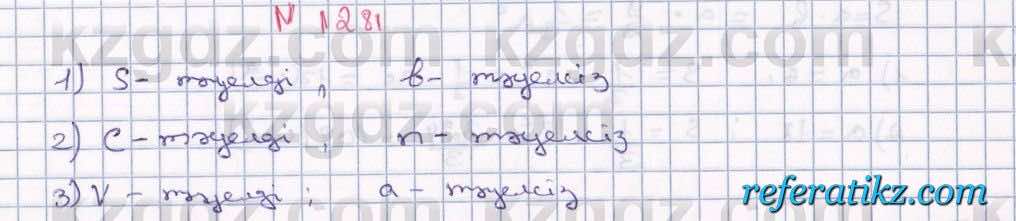 N 1281
1) S - тәуелді, b - тәуелсіз
2) C - тәуелді, n - тәуелсіз
3) V - тәуелді; a - тәуелсіз
kzgdz.com
referatikz.com